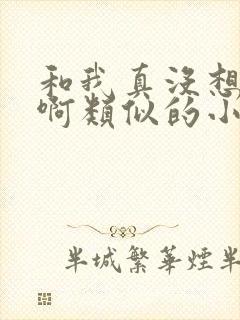 和我真没想
啊类似的小
半城繁華煙半